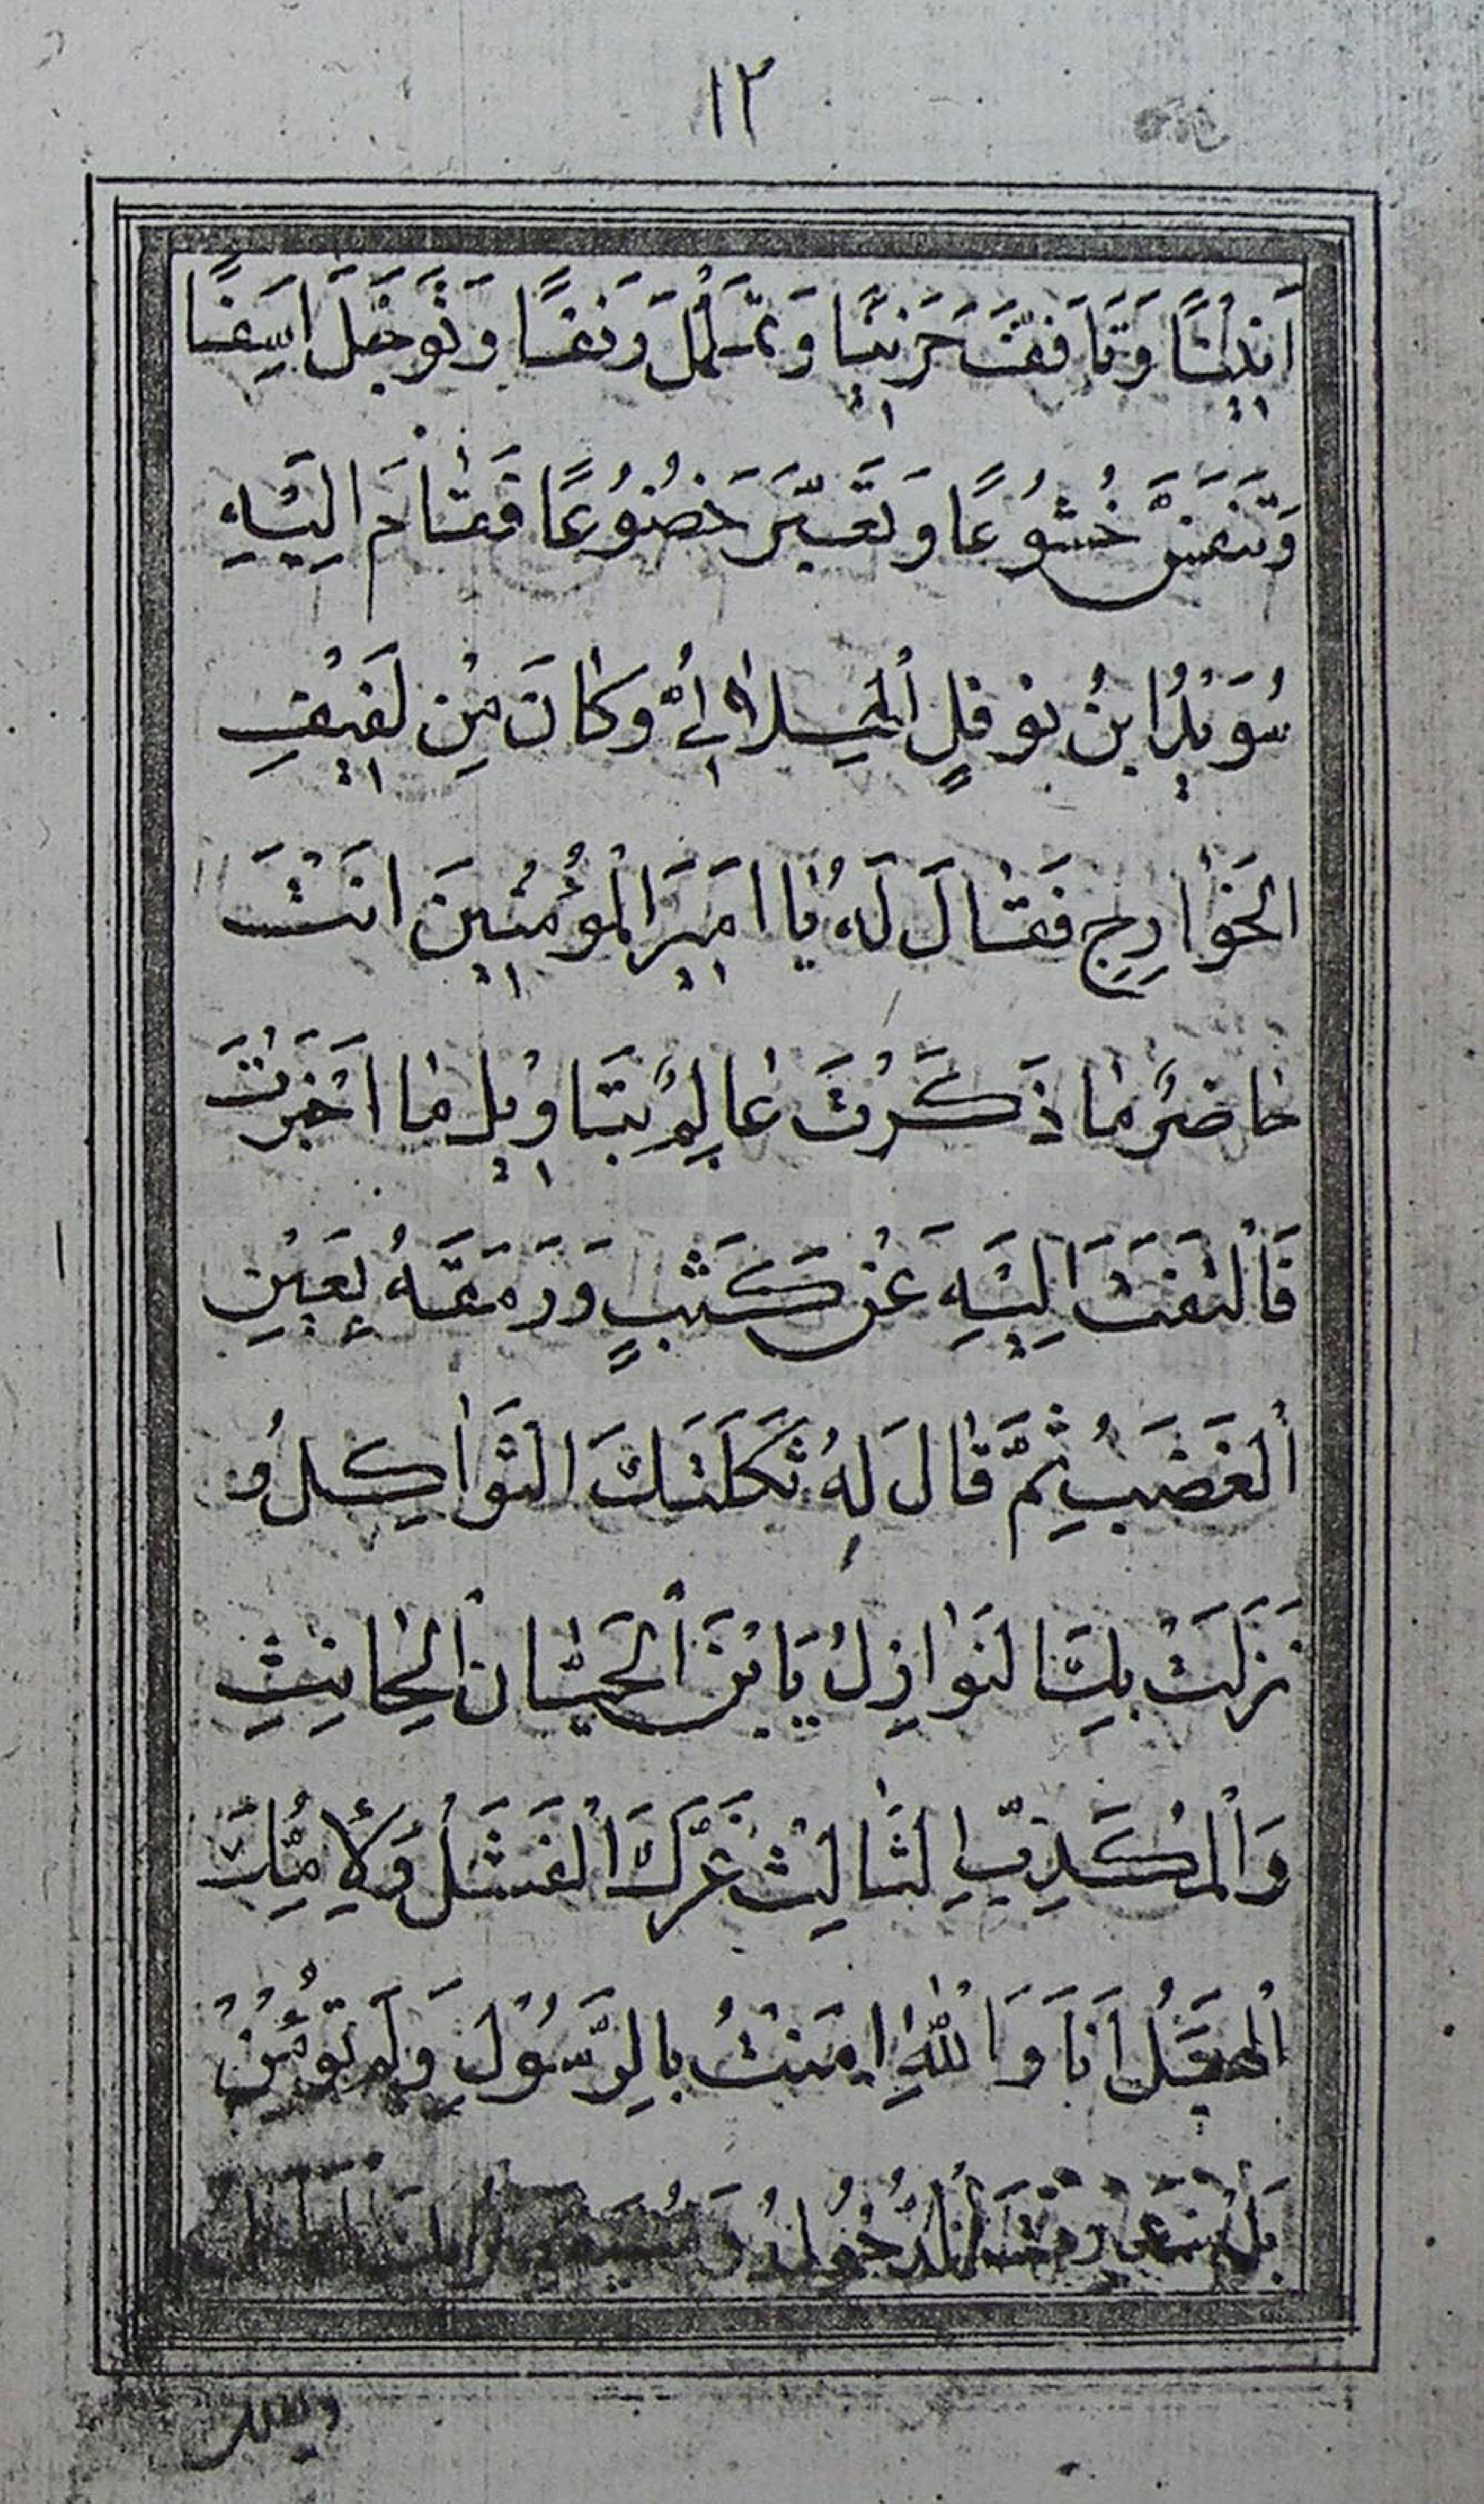 ١٢
اَنِينًا وَتَافَفَّتَ حَزِينًا وَتَمَلْمَلَ وَنَفَسًا وَتَوَجَّلَ اسَفًا
وَتَنَفَسَّ خُشُوُعًا وَتَغَيَّرَ خُضُوُعًا فَقٰامَ اِلَيْهِ
سُوَيْدُ ابنُ نوفلٍ الْهِلاٰلِىُّ وَكٰانَ مِنْ لَفِيْفِ
الخَوٰارِجِ فَقٰالَ لَهُ يٰا امِيرَ الْمُؤْمِنِينَ انَتْ
حٰاضِرٌ مٰا ذَكَرْتَ عٰالِمٌ بتَاوْيِلِ مٰا اَخْبَرْتَ
فَالْتَفَتَ اِلَيْهِ عَنْ كَثَبٍ وَرَمَقَهُ بِعَيْنِ
الْغَضَبِ ثُمَّ قٰالَ لَهُ ثَكَلَتْكَ الثَّوٰاكِلُ وُ
نَزَلَتْ بِكَ النَوٰازِلُ يَا بْنَ الْجَبٰانِ الْخٰانِثِ
وَالْمُكَذِّبِ الثّٰالِثْ غَرَّكَ الْفَشَلُ وَلِأُمِّكَ
الْهَبَلُ اَنَا وَاللّٰهِ اٖمَنْتُ بِالرَّسُوْلِ وَلَمْ تُؤْمِنْ
بَلْ